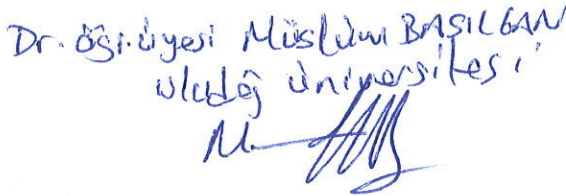 Dr. öğr. üyesi Müslüm BAŞILGAN
uludağ üniversitesi